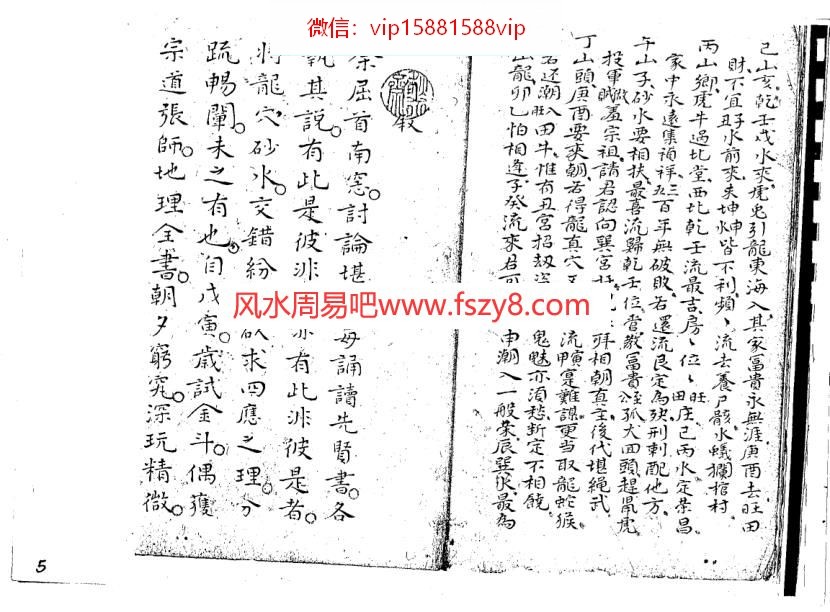 微信：vip15881588vip
巳山亥乾壬戌水來虎兎引龍東海入其家冨貴永無涯庚酉去旺田
財不宜子丑水前來未坤申皆不利頻頻流去養尸骸水蟻攔棺村
丙山鄉虎牛過北堂西北乾壬流最吉房房位位旺田庄巳丙水定荣昌
家中永遠集禎祥三百年無破敗若還流艮定為殃刑剌配他方
午山子砂水要相扶最喜流歸乾壬位當教冨貴孤犬四頭趕鼠虎
投軍賊羞宗祖請君認向巽宮拜相朝真主後代堪繩武
丁山頭庚酉要來朝若得龍真穴流寅寔難誤更当取龍蛇猴
若还潮入田牛惟有丑宮招刼盗鬼魅亦須愁断定不相饒
山龍卯乙怕相逢子癸流來君可申潮入一般荣辰巽水最為
敘
余屈首南窓討論堪每誦讀先賢書各
執其說有此是彼非亦有此非彼是者
將龍穴砂水交錯紛欲求四應之理分
疏暢闡未之有也自戊寅歲試金斗偶獲
宗道張師地理全書朝夕窮究深玩精微
风水周易吧www.fszy8.com
5